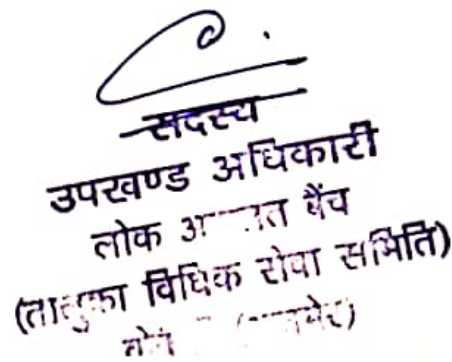 सदस्य
उपखण्ड अधिकारी
लोक बैंच
(तालुका विधिक सेवा समिति)